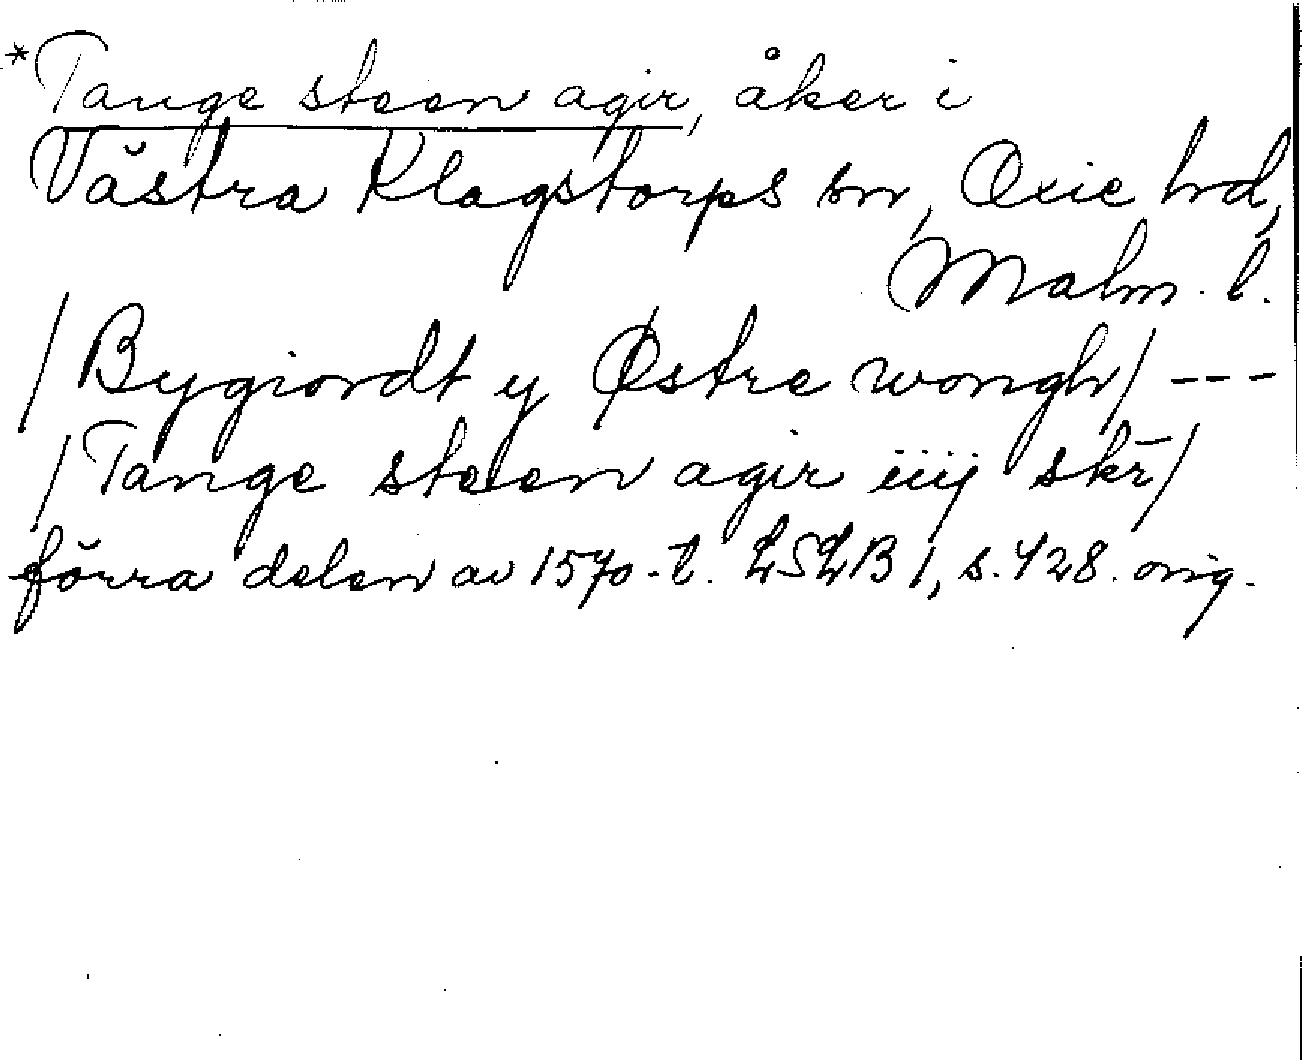 *Tange steen agir, åker i
Västra Klagstorps sn, Oxie hd,
Malm. l.
/Bygiordt y Østre wongh/ ---
/Tange steen agir iiij skr̄/
förra delen av 1570-t. LSLB 1, s. 428. orig.